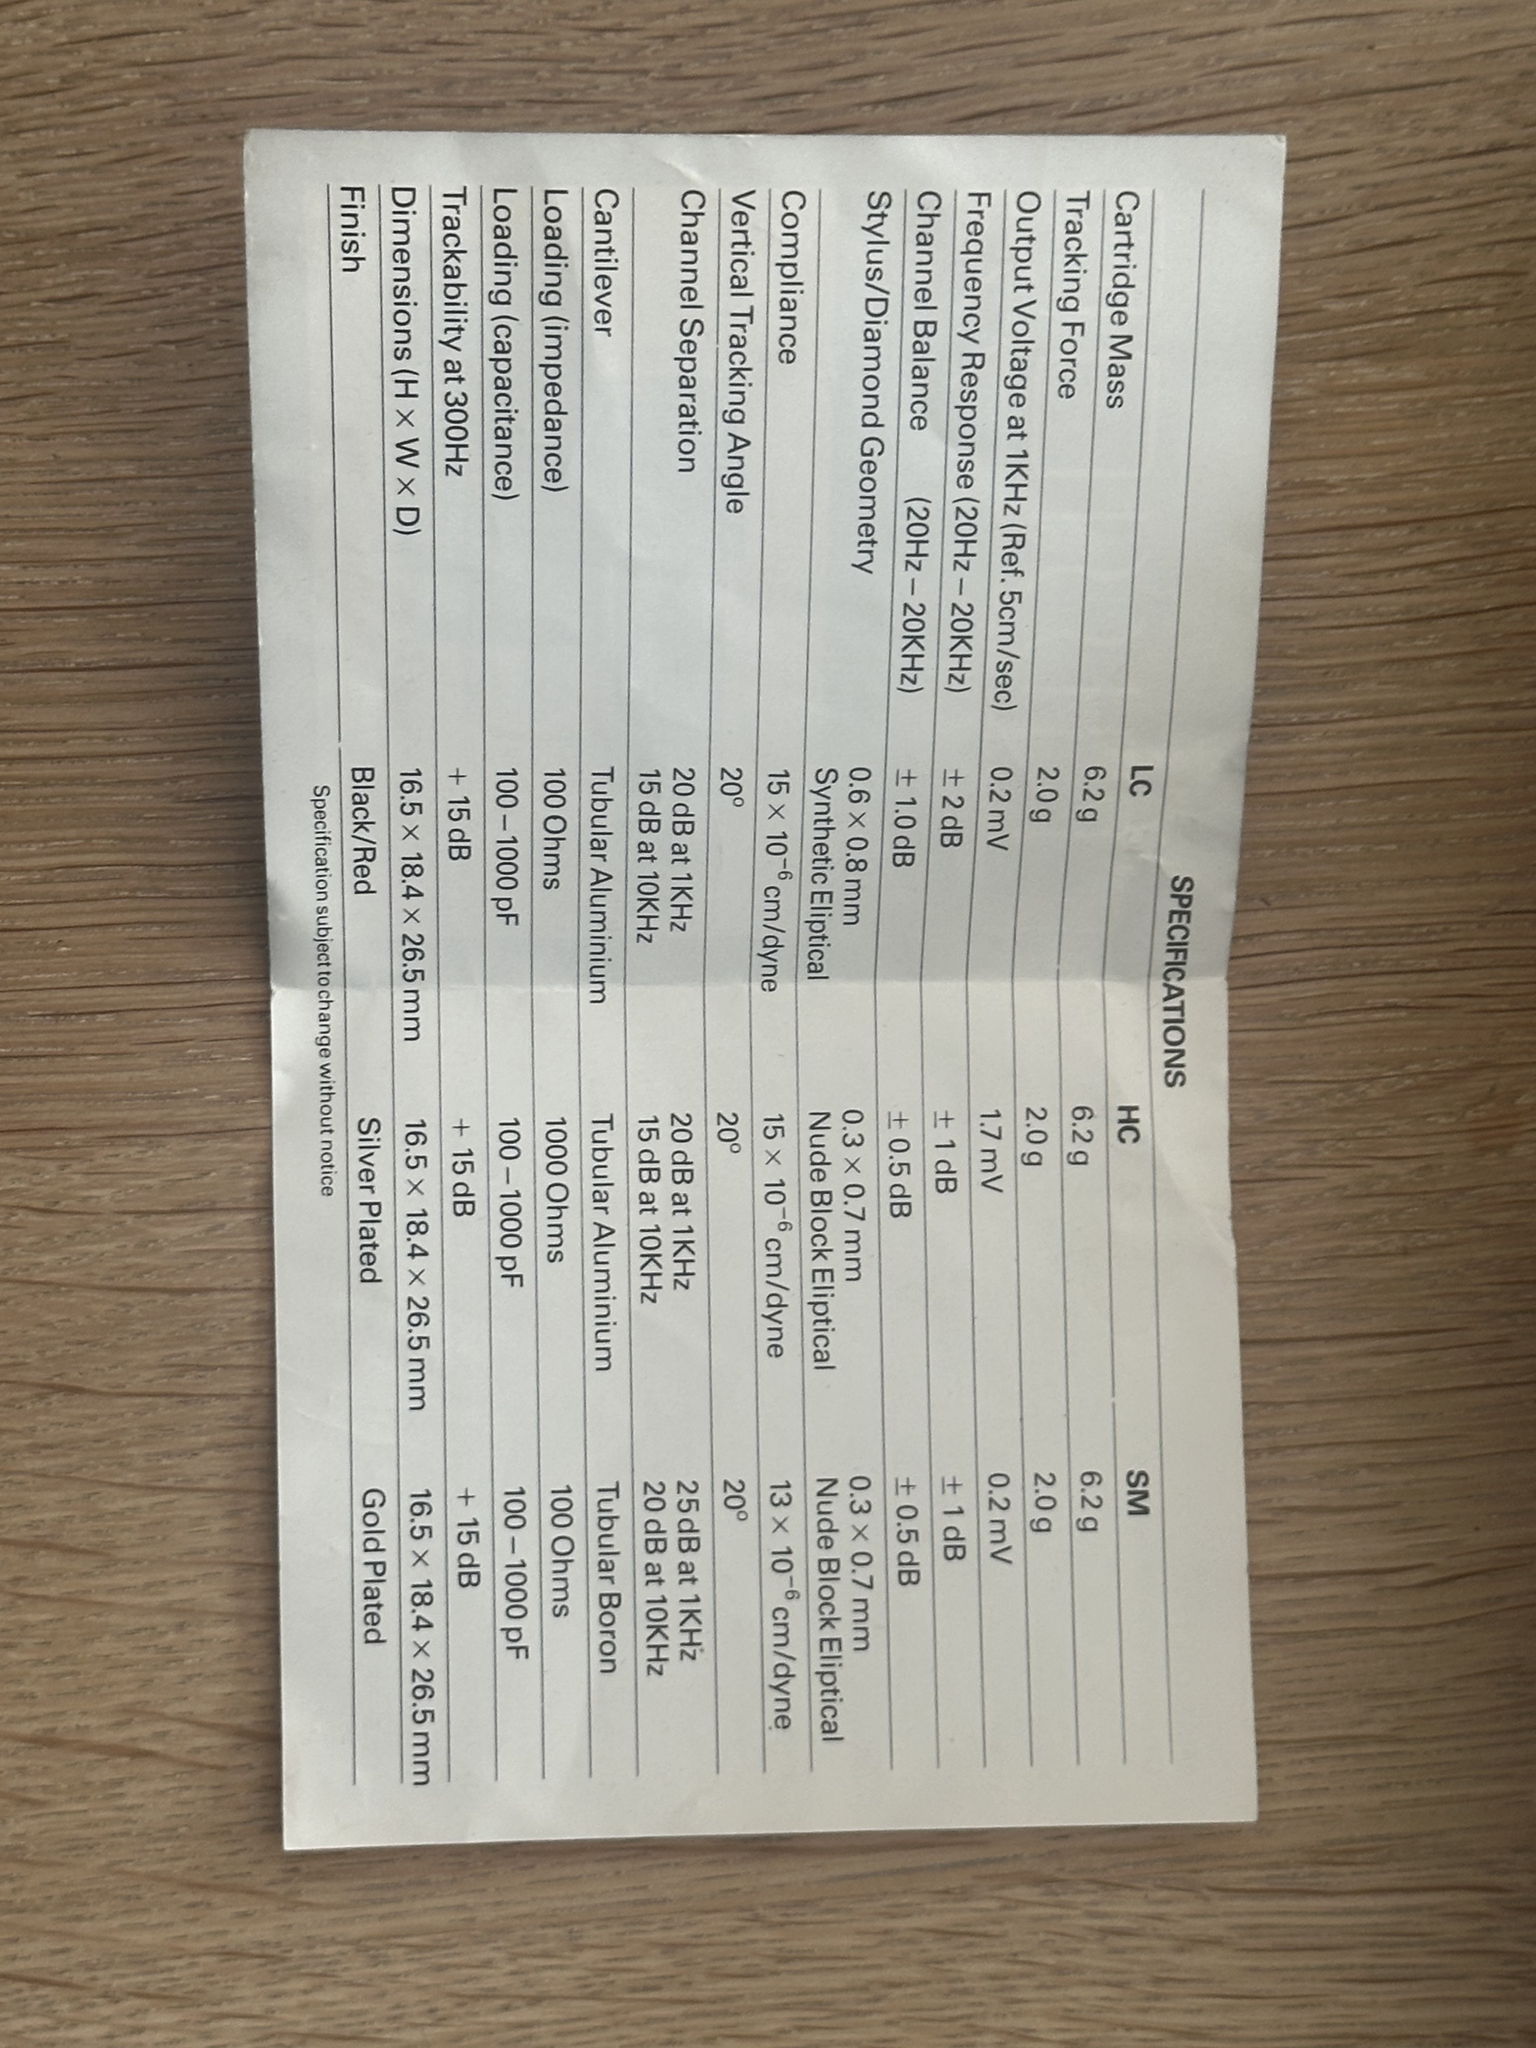 SPECIFICATIONS
LC HC SM
Cartridge Mass 6.2g 6.2g 6.2g
Tracking Force 2.0g 2.0g 2.0g
Output Voltage at 1KHz (Ref. 5cm/sec) 0.2mV 1.7mV 0.2mV
Frequency Response (20Hz – 20KHz) ± 2dB ± 1dB ± 1dB
Channel Balance (20Hz – 20KHz) ± 1.0dB ± 0.5dB ± 0.5dB
Stylus/Diamond Geometry 0.6 × 0.8mm 0.3 × 0.7mm 0.3 × 0.7mm
Synthetic Eliptical Nude Block Eliptical Nude Block Eliptical
Compliance 15 × 10⁻⁶ cm/dyne 15 × 10⁻⁶ cm/dyne 13 × 10⁻⁶ cm/dyne
Vertical Tracking Angle 20° 20° 20°
Channel Separation 20dB at 1KHz 20dB at 1KHz 25dB at 1KHz
15dB at 10KHz 15dB at 10KHz 20dB at 10KHz
Cantilever Tubular Aluminium Tubular Aluminium Tubular Boron
Loading (impedance) 100 Ohms 1000 Ohms 100 Ohms
Loading (capacitance) 100 – 1000pF 100 – 1000pF 100 – 1000pF
Trackability at 300Hz + 15dB + 15dB + 15dB
Dimensions (H × W × D) 16.5 × 18.4 × 26.5mm 16.5 × 18.4 × 26.5mm 16.5 × 18.4 × 26.5mm
Finish Black/Red Silver Plated Gold Plated
Specification subject to change without notice